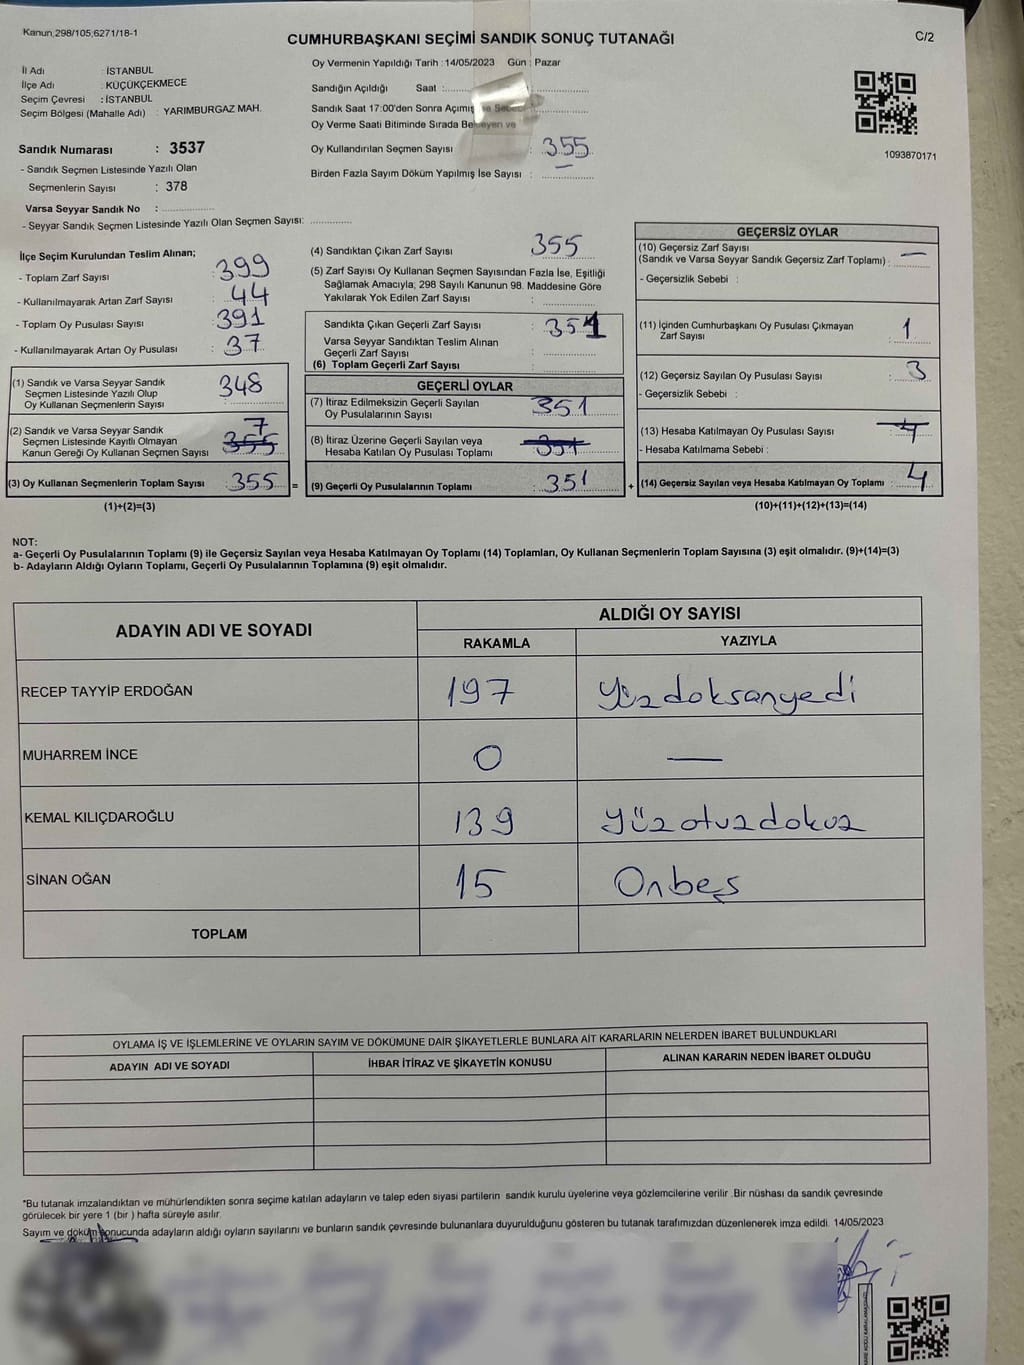 Kanun,298/105,6271/18-1
CUMHURBAŞKANI SEÇİMİ SANDIK SONUÇ TUTANAĞI
C/2
Oy Vermenin Yapıldığı Tarih : 14/05/2023 Gün : Pazar
İl Adı : İSTANBUL
İlçe Adı : KÜÇÜKÇEKMECE
Seçim Çevresi : İSTANBUL
Seçim Bölgesi (Mahalle Adı) : YARIMBURGAZ MAH.
Sandığın Açıldığı Saat :
Sandık Saat 17:00'den Sonra Açımış
Oy Verme Saati Bitiminde Sırada Bekleyen ve
Oy Kullandırılan Seçmen Sayısı : 355
Birden Fazla Sayım Döküm Yapılmış İse Sayısı :
1093870171
Sandık Numarası : 3537
- Sandık Seçmen Listesinde Yazılı Olan
Seçmenlerin Sayısı : 378
Varsa Seyyar Sandık No :
- Seyyar Sandık Seçmen Listesinde Yazılı Olan Seçmen Sayısı:
İlçe Seçim Kurulundan Teslim Alınan;
- Toplam Zarf Sayısı : 399
- Kullanılmayarak Artan Zarf Sayısı : 44
- Toplam Oy Pusulası Sayısı : 391
- Kullanılmayarak Artan Oy Pusulası : 37
(1) Sandık ve Varsa Seyyar Sandık
Seçmen Listesinde Yazılı Olup
Oy Kullanan Seçmenlerin Sayısı : 348
(2) Sandık ve Varsa Seyyar Sandık
Seçmen Listesinde Kayıtlı Olmayan
Kanun Gereği Oy Kullanan Seçmen Sayısı : 355 7
(3) Oy Kullanan Seçmenlerin Toplam Sayısı : 355 =
(1)+(2)=(3)
(4) Sandıktan Çıkan Zarf Sayısı : 355
(5) Zarf Sayısı Oy Kullanan Seçmen Sayısından Fazla İse, Eşitliği
Sağlamak Amacıyla; 298 Sayılı Kanunun 98. Maddesine Göre
Yakılarak Yok Edilen Zarf Sayısı :
Sandıkta Çıkan Geçerli Zarf Sayısı : 354
Varsa Seyyar Sandıktan Teslim Alınan
Geçerli Zarf Sayısı :
(6) Toplam Geçerli Zarf Sayısı :
GEÇERLİ OYLAR
(7) İtiraz Edilmeksizin Geçerli Sayılan
Oy Pusulalarının Sayısı : 351
(8) İtiraz Üzerine Geçerli Sayılan veya
Hesaba Katılan Oy Pusulası Toplamı : 351
(9) Geçerli Oy Pusulalarının Toplamı : 351 +
GEÇERSİZ OYLAR
(10) Geçersiz Zarf Sayısı
(Sandık ve Varsa Seyyar Sandık Geçersiz Zarf Toplamı) : —
- Geçersizlik Sebebi :
(11) İçinden Cumhurbaşkanı Oy Pusulası Çıkmayan
Zarf Sayısı : 1
(12) Geçersiz Sayılan Oy Pusulası Sayısı : 3
- Geçersizlik Sebebi :
(13) Hesaba Katılmayan Oy Pusulası Sayısı : 4
- Hesaba Katılmama Sebebi :
(14) Geçersiz Sayılan veya Hesaba Katılmayan Oy Toplamı : 4
(10)+(11)+(12)+(13)=(14)
NOT:
a- Geçerli Oy Pusulalarının Toplamı (9) ile Geçersiz Sayılan veya Hesaba Katılmayan Oy Toplamı (14) Toplamları, Oy Kullanan Seçmenlerin Toplam Sayısına (3) eşit olmalıdır. (9)+(14)=(3)
b- Adayların Aldığı Oyların Toplamı, Geçerli Oy Pusulalarının Toplamına (9) eşit olmalıdır.
ADAYIN ADI VE SOYADI
ALDIĞI OY SAYISI
RAKAMLA YAZIYLA
RECEP TAYYİP ERDOĞAN 197 Yüzdoksanyedi
MUHARREM İNCE 0 —
KEMAL KILIÇDAROĞLU 139 yüzotuzdokuz
SİNAN OĞAN 15 Onbeş
TOPLAM
OYLAMA İŞ VE İŞLEMLERİNE VE OYLARIN SAYIM VE DÖKÜMÜNE DAİR ŞİKAYETLERLE BUNLARA AİT KARARLARIN NELERDEN İBARET BULUNDUKLARI
ADAYIN ADI VE SOYADI İHBAR İTİRAZ VE ŞİKAYETİN KONUSU ALINAN KARARIN NEDEN İBARET OLDUĞU
*Bu tutanak imzalandıktan ve mühürlendikten sonra seçime katılan adayların ve talep eden siyasi partilerin sandık kurulu üyelerine veya gözlemcilerine verilir .Bir nüshası da sandık çevresinde
görülecek bir yere 1 (bir ) hafta süreyle asılır.
Sayım ve döküm sonucunda adayların aldığı oyların sayılarını ve bunların sandık çevresinde bulunanlara duyurulduğunu gösteren bu tutanak tarafımızdan düzenlenerek imza edildi. 14/05/2023